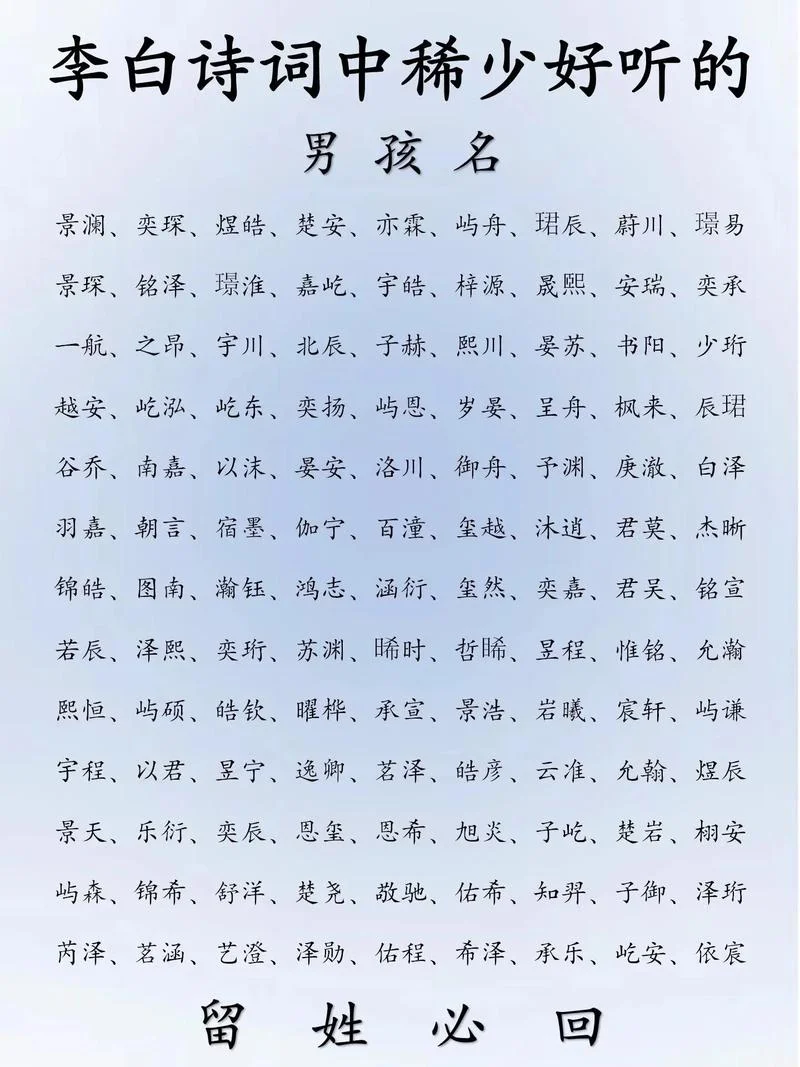 李白诗词中稀少好听的
男孩名
景澜、奕琛、煜皓、楚安、亦霖、屿舟、珺辰、蔚川、璟易
景琛、铭泽、璟淮、嘉屹、宇皓、梓源、晟熙、安瑞、奕承
一航、之昂、宇川、北辰、子赫、熙川、晏苏、书阳、少珩
越安、屹泓、屹东、奕扬、屿恩、岁晏、呈舟、枫来、辰珺
谷乔、南嘉、以沫、晏安、洛川、御舟、予渊、庚澈、白泽
羽嘉、朝言、宿墨、伽宁、百潼、玺越、沐逍、君莫、杰晰
锦皓、图南、瀚钰、鸿志、涵衍、玺然、奕嘉、君吴、铭宣
若辰、泽熙、奕珩、苏渊、晞时、哲晞、昱程、惟铭、允瀚
熙恒、屿硕、皓钦、曜桦、承宣、景浩、岩曦、宸轩、屿谦
宇程、以君、昱宁、逸卿、茗泽、皓彦、云准、允翰、煜辰
景天、乐衍、奕辰、恩玺、恩希、旭炎、子屹、楚岩、栩安
屿森、锦希、舒洋、楚尧、敬驰、佑希、知羿、子御、泽珩
芮泽、茗涵、艺澄、泽勋、佑程、希泽、承乐、屹安、依宸
留姓必回